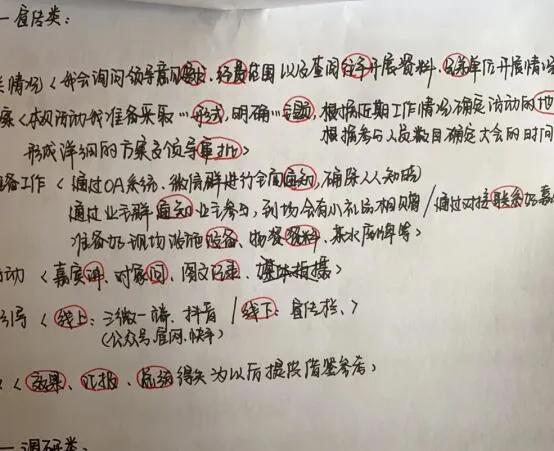 一宣传类:
情况<我会询问领导意见要求、经费范围以及查阅往年开展资料、兄弟单位开展情况
案<本次活动我准备采取…形式,明确…主题,根据近期工作情况确定活动的地
根据参与人员数目确定大会的时间
形成详细的方案交领导审批>
准备工作<通过OA系统、微信群进行全面通知,确保人人知晓
通过业主群通知业主参与,到场会有小礼品相赠/通过对接联系好嘉
准备好现场设施设备、物资资料、茶水席牌等>
动<嘉宾讲、对象问、图文记录、媒体拍摄>
引导<线上:三微一端、抖音/线下:宣传栏、>
(公众号、官网、快手)
<效果、汇报、总结得失为以后提供借鉴参考>
一调研类: